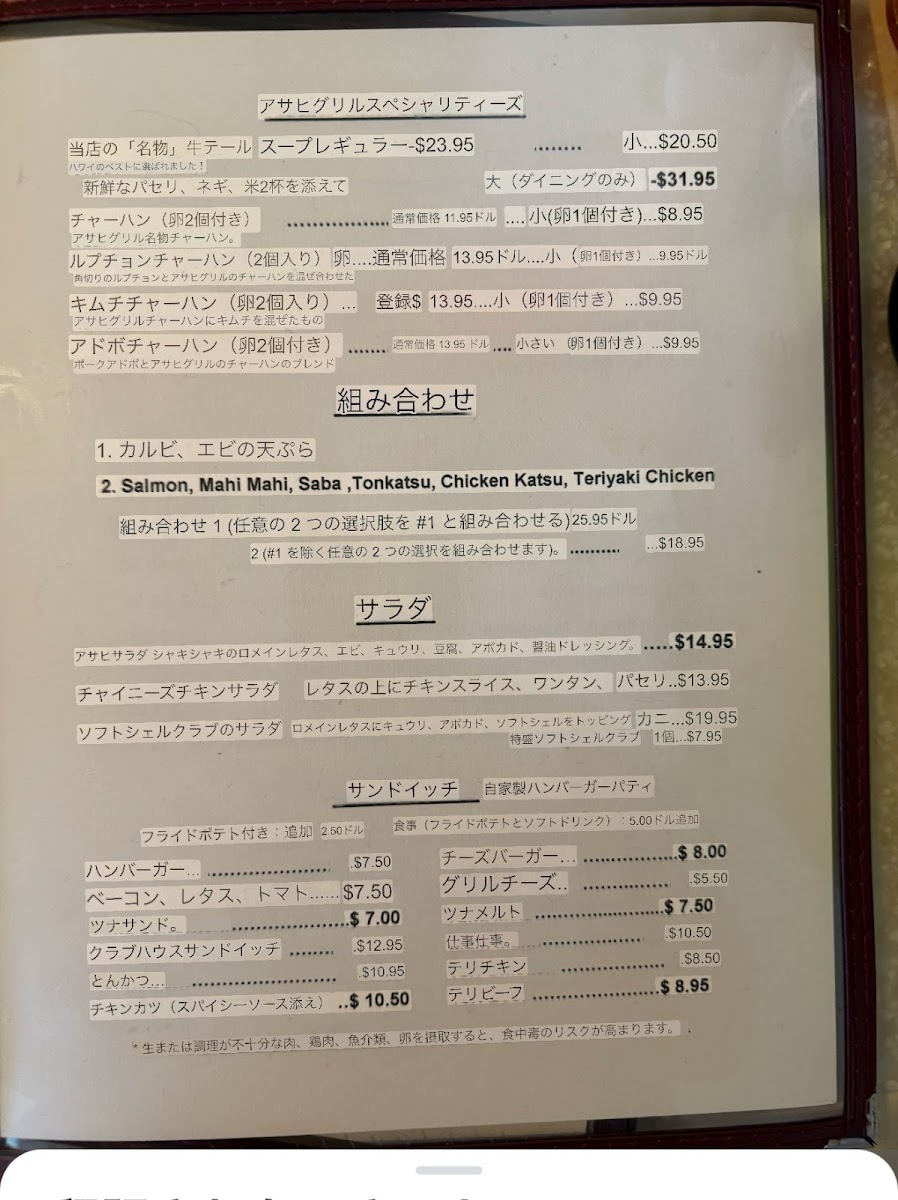 アサヒグリルスペシャリティーズ
当店の「名物」牛テール スープレギュラー-$23.95 ........ 小...$20.50
ハワイのベストに選ばれました！
新鮮なパセリ、ネギ、米2杯を添えて 大（ダイニングのみ） -$31.95
チャーハン（卵2個付き） ...................... 通常価格 11.95ドル .... 小(卵1個付き)...$8.95
アサヒグリル名物チャーハン。
ルプチョンチャーハン（2個入り） 卵....通常価格 13.95ドル....小（卵1個付き）...9.95ドル
角切りのルプチョンとアサヒグリルのチャーハンを混ぜ合わせた
キムチチャーハン（卵2個入り）... 登録$ 13.95....小（卵1個付き）...$9.95
アサヒグリルチャーハンにキムチを混ぜたもの
アドボチャーハン（卵2個付き） ....... 通常価格 13.95 ドル .... 小さい （卵1個付き）...$9.95
ポークアドボとアサヒグリルのチャーハンのブレンド
組み合わせ
1. カルビ、エビの天ぷら
2. Salmon, Mahi Mahi, Saba ,Tonkatsu, Chicken Katsu, Teriyaki Chicken
組み合わせ 1 (任意の 2 つの選択肢を #1 と組み合わせる)25.95ドル
2 (#1 を除く任意の 2 つの選択を組み合わせます)。 .......... ...$18.95
サラダ
アサヒサラダ シャキシャキのロメインレタス、エビ、キュウリ、豆腐、アボカド、醤油ドレッシング。 .....$14.95
チャイニーズチキンサラダ レタスの上にチキンスライス、ワンタン、 パセリ..$13.95
ソフトシェルクラブのサラダ ロメインレタスにキュウリ、アボカド、ソフトシェルをトッピング カニ...$19.95
特盛ソフトシェルクラブ 1個...$7.95
サンドイッチ 自家製ハンバーガーパティ
フライドポテト付き：追加 2.50ドル 食事（フライドポテトとソフトドリンク）：5.00ドル追加
ハンバーガー... ...................... .$7.50 チーズバーガー... ................$ 8.00
ベーコン、レタス、トマト......$7.50 グリルチーズ.. ............... .$5.50
ツナサンド。 ....................$ 7.00 ツナメルト ......................$ 7.50
クラブハウスサンドイッチ ........ .$12.95 仕事仕事。 .................. .$10.50
とんかつ... ......................... .$10.95 テリチキン .................. .$8.50
チキンカツ（スパイシーソース添え） ..$ 10.50 テリビーフ ......................$ 8.95
* 生または調理が不十分な肉、鶏肉、魚介類、卵を摂取すると、食中毒のリスクが高まります。